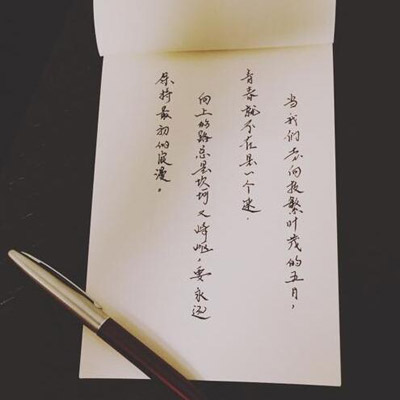 当我们走向枝繁叶茂的五月，
青春就不在是一个迷.
向上的路总是坎坷又崎岖，要永远
保持最初的浪漫。